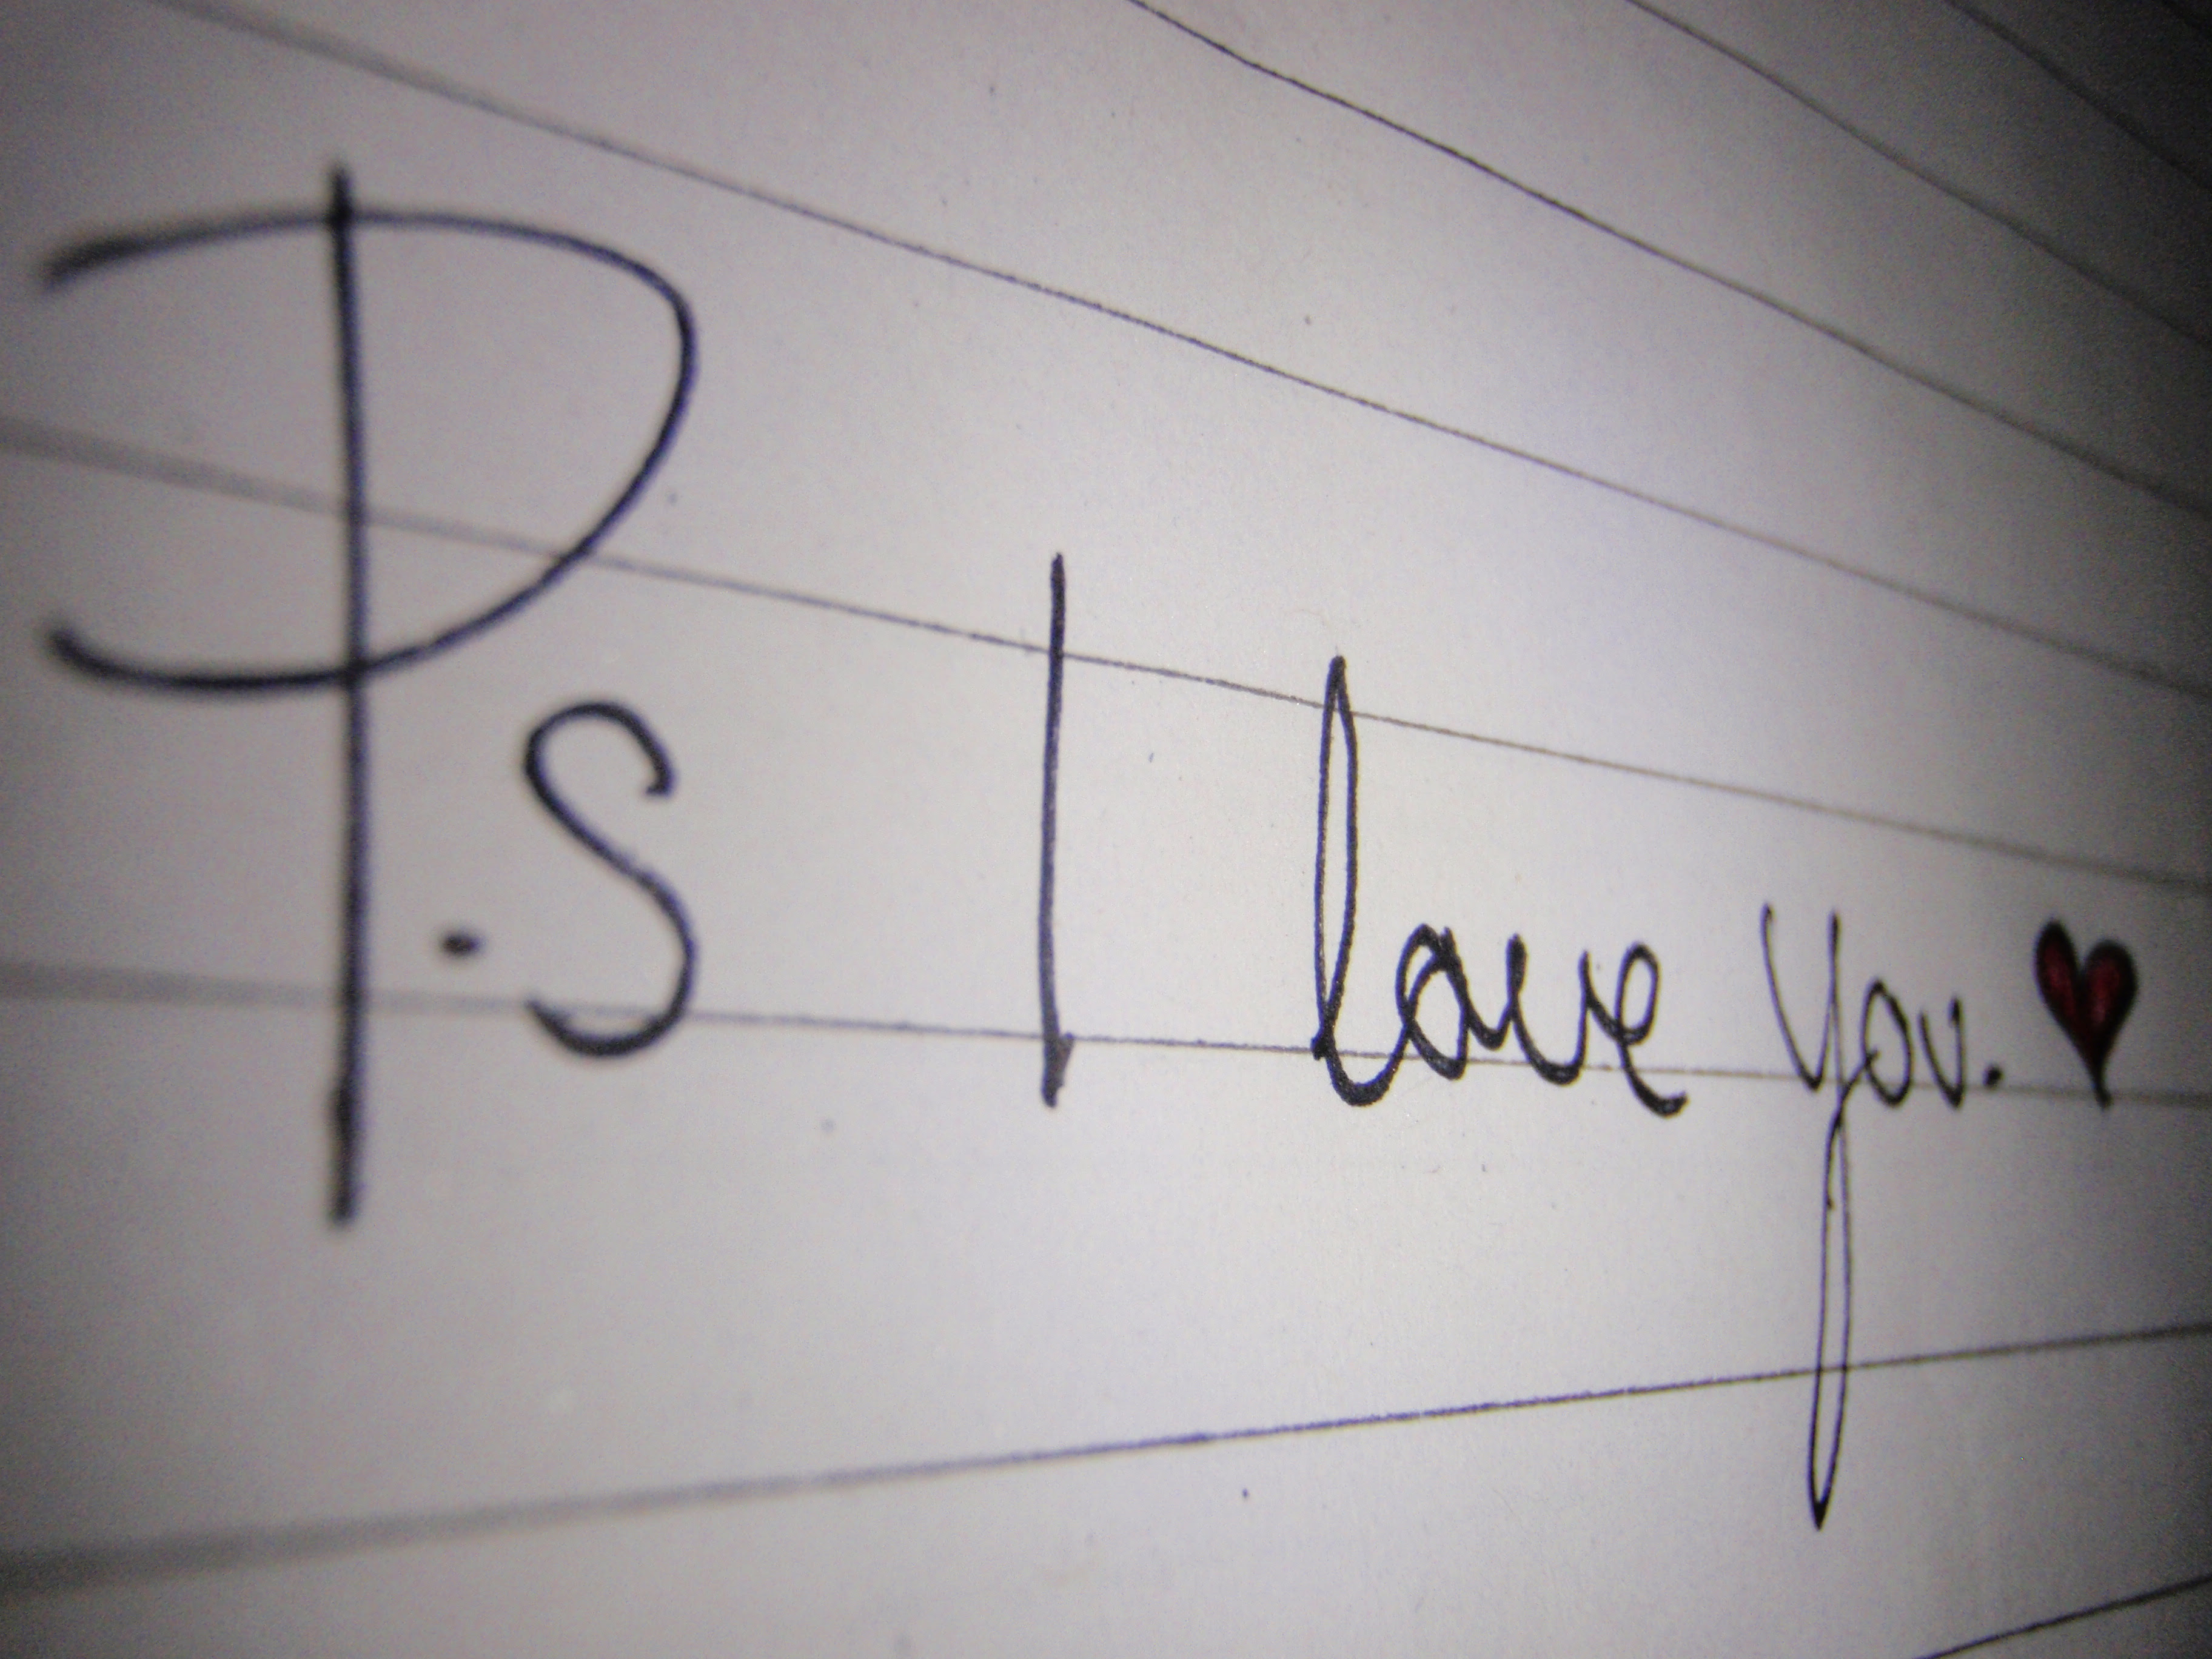 P.S I love you. ♥